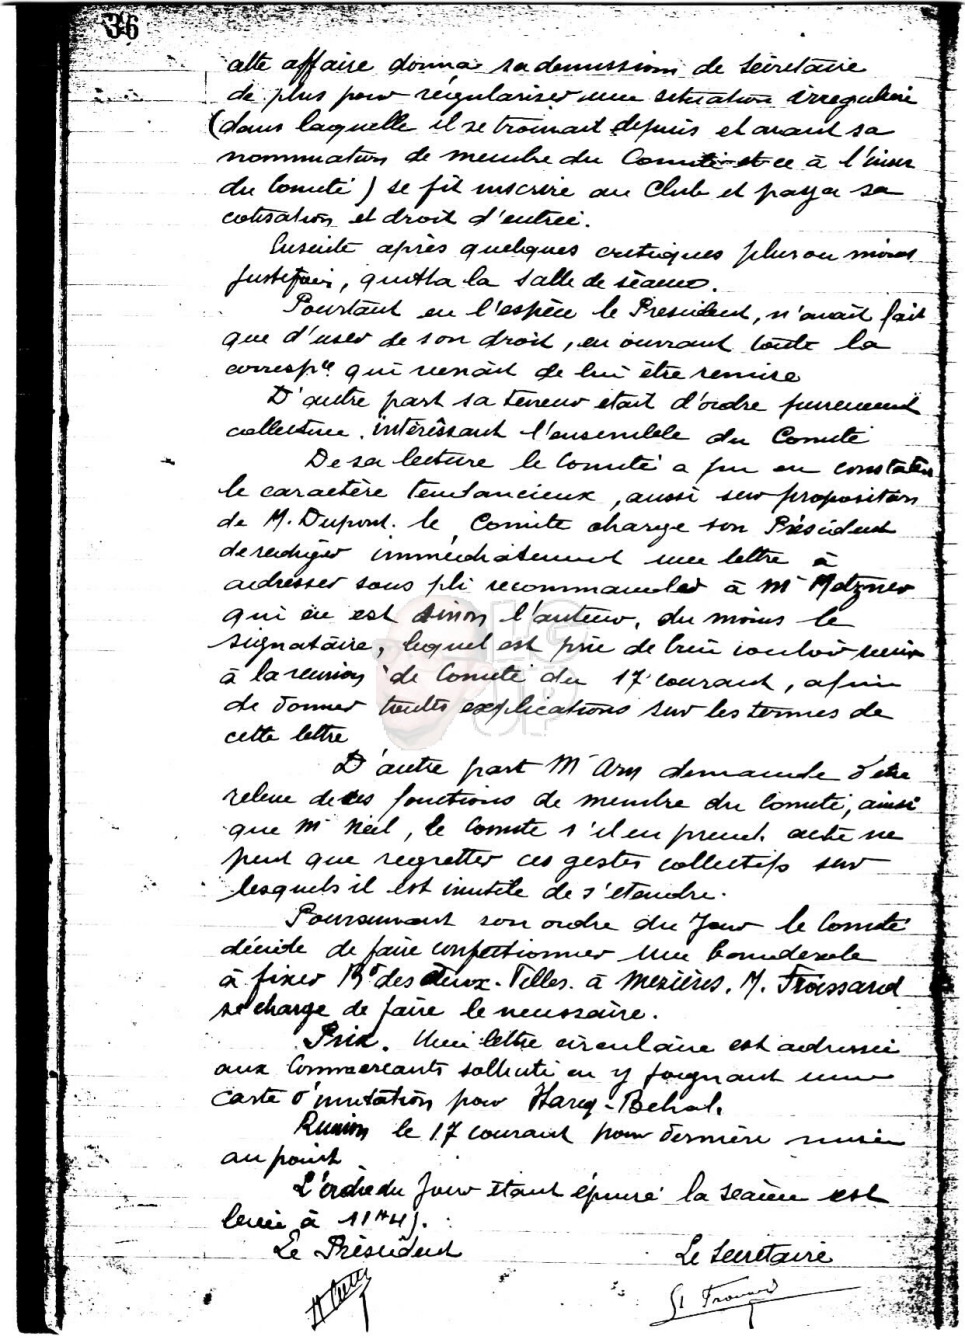 36
cette affaire donna sa demission de secretaire
de plus pour régulariser une situation irreguliere
(dans laquelle il se trouvait depuis et avant sa
nommination de membre du Comité et ce à l'insu
du Comité) se fit inscrire au Club et paya sa
cotisation et droit d'entrée.
Ensuite après quelques critiques plus ou moins
justifiées, quitta la salle de séances.
Pourtant en l'espèce le President, n'avait fait
que d'user de son droit, en ouvrant toute la
correspce qui venait de lui être remise
D'autre part sa teneur était d'ordre purement
collective intéressant l'ensemble du Comité
De sa lecture le Comité a pu en constater
le caractère tendancieux, aussi sur proposition
de M. Dupont. le Comité charge son Président
de rediger immédiatement une lettre à
adresser sous pli recommandé à Mr Metzner
qui en est sinon l'auteur, du moins le
signataire, lequel est prié de bien vouloir venir
à la reunion de Comité du 17 courant, afin
de donner toutes explications sur les termes de
cette lettre
D'autre part Mr Arn demande d'être
releve de ses fonctions de membre du Comité, ainsi
que Mr Neil, le Comité s'il en prend acte ne
peut que regretter ces gestes collectifs sur
lesquels il est inutile de s'etendre.
Poursuivant son ordre du Jour le Comité
décide de faire confectionner une banderole
à fixer Bd des deux-Villes à Mézières. M. Froissard
se charge de faire le necessaire.
Prix. Une lettre circulaire est adressée
aux Commercants sollicité en y joignant une
carte d'invitation pour
Reunion le 17 courant pour dernière mise
au point
L'ordre du Jour étant épuisé la séance est
levée à 11H45.
Le Président
Le Secretaire